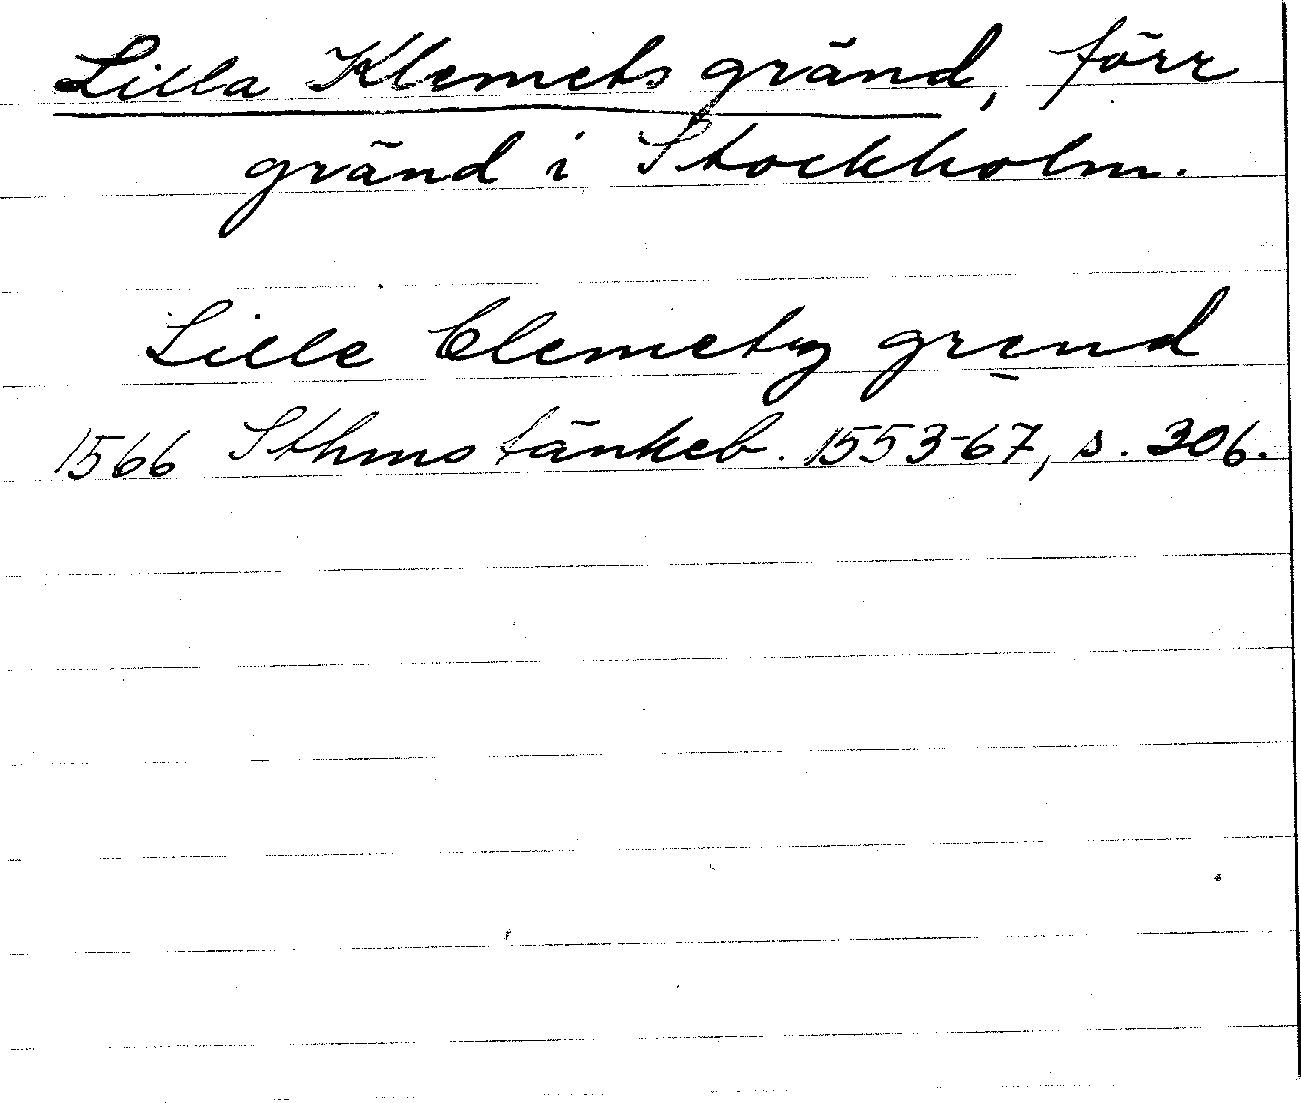 Lilla Klemets gränd, förr
gränd i Stockholm.
Lille Clemetz grend
1566 Sthms tänkeb. 1553-67, s. 306.